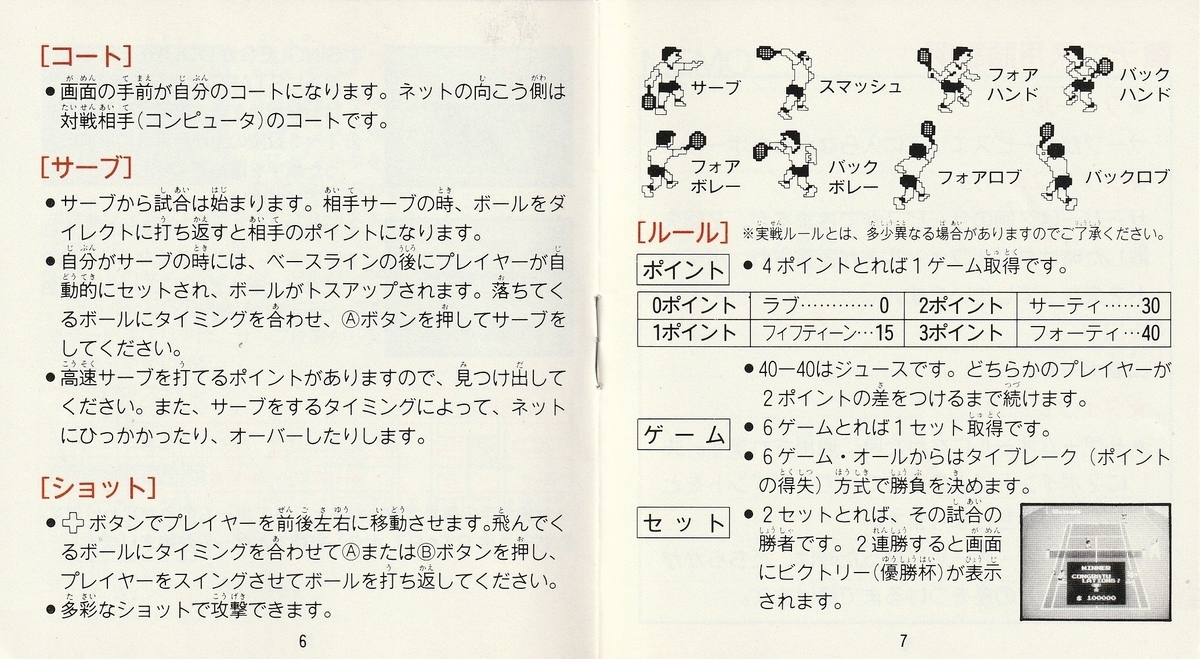 [コート]
●画面の手前が自分のコートになります。ネットの向こう側は
対戦相手(コンピュータ)のコートです。
[サーブ]
●サーブから試合は始まります。相手サーブの時、ボールをダ
イレクトに打ち返すと相手のポイントになります。
●自分がサーブの時には、ベースラインの後にプレイヤーが自
動的にセットされ、ボールがトスアップされます。落ちてく
るボールにタイミングを合わせ、Ⓐボタンを押してサーブを
してください。
●高速サーブを打てるポイントがありますので、見つけ出して
ください。また、サーブをするタイミングによって、ネット
にひっかかったり、オーバーしたりします。
[ショット]
●ボタンでプレイヤーを前後左右に移動させます。飛んでく
るボールにタイミングを合わせてⒶまたはⒷボタンを押し、
プレイヤーをスイングさせてボールを打ち返してください。
●多彩なショットで攻撃できます。
6
サーブ
スマッシュ
フォア
ハンド
バック
ハンド
フォア
ボレー
バック
ボレー
フォアロブ
バックロブ
[ルール] ※実戦ルールとは、多少異なる場合がありますのでご了承ください。
ポイント ●4ポイントとれば1ゲーム取得です。
0ポイント ラブ…………0 2ポイント サーティ……30
1ポイント フィフティーン…15 3ポイント フォーティ…40
●40ー40はジュースです。どちらかのプレイヤーが
2ポイントの差をつけるまで続けます。
ゲーム ●6ゲームとれば1セット取得です。
●6ゲーム・オールからはタイブレーク(ポイント
の得失)方式で勝負を決めます。
セット ●2セットとれば、その試合の
勝者です。2連勝すると画面
にビクトリー(優勝杯)が表示
されます。
WINNER
CONGRATU
LATIONS!
$ 100000
7